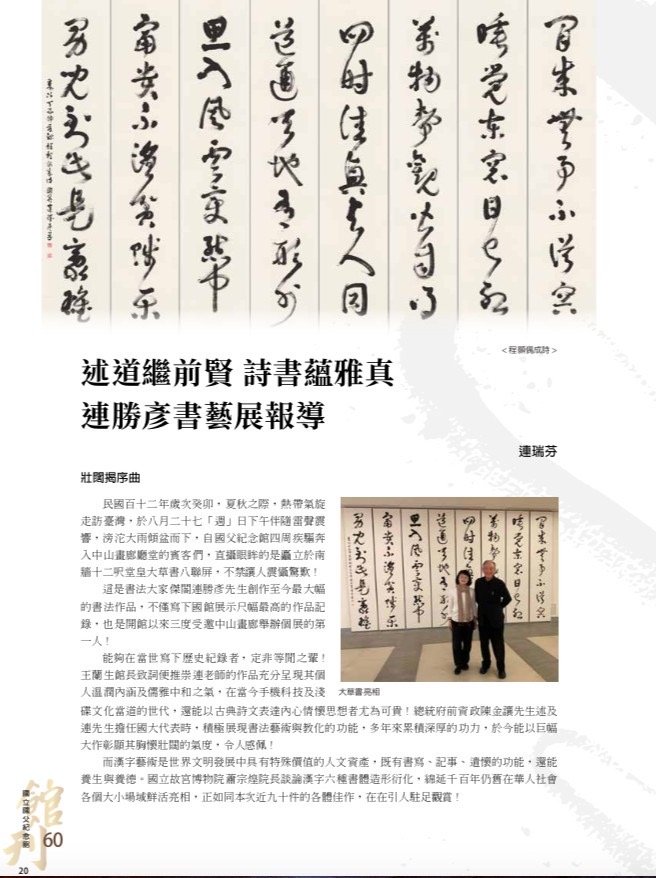 閒來無事不從容
睡覺東窗日已紅
萬物靜觀皆自得
四時佳興與人同
道通天地有形外
思入風雲變態中
富貴不淫貧賤樂
男兒到此是豪雄
<程顥偶成詩>
述道繼前賢 詩書蘊雅真
連勝彥書藝展報導
連瑞芬
壯闊揭序曲
民國百十二年歲次癸卯，夏秋之際，熱帶氣旋
走訪臺灣，於八月二十七「週」日下午伴隨雷聲震
響，滂沱大雨傾盆而下，自國父紀念館四周疾驅奔
入中山畫廊廳堂的賓客們，直攝眼眸的是矗立於南
牆十二呎堂皇大草書八聯屏，不禁讓人震懾驚歎！
這是書法大家傑閣連勝彥先生創作至今最大幅
的書法作品，不僅寫下國館展示尺幅最高的作品記
錄，也是開館以來三度受邀中山畫廊舉辦個展的第
一人！
能夠在當世寫下歷史紀錄者，定非等閒之輩！
王蘭生館長致詞便推崇連老師的作品充分呈現其個
人溫潤內涵及儒雅中和之氣，在當今手機科技及淺
大草書亮相
碟文化當道的世代，還能以古典詩文表達內心情懷思想者尤為可貴！總統府前資政陳金讓先生述及
連先生擔任國大代表時，積極展現書法藝術與教化的功能，多年來累積深厚的功力，於今能以巨幅
大作彰顯其胸懷壯闊的氣度，令人感佩！
而漢字藝術是世界文明發展中具有特殊價值的人文資產，既有書寫、記事、遣懷的功能，還能
養生與養德。國立故宮博物院蕭宗煌院長談論漢字六種書體造形衍化，綿延千百年仍舊在華人社會
各個大小場域鮮活亮相，正如同本次近九十件的各體佳作，在在引人駐足觀賞！
館刊
國立國父紀念館
60
20